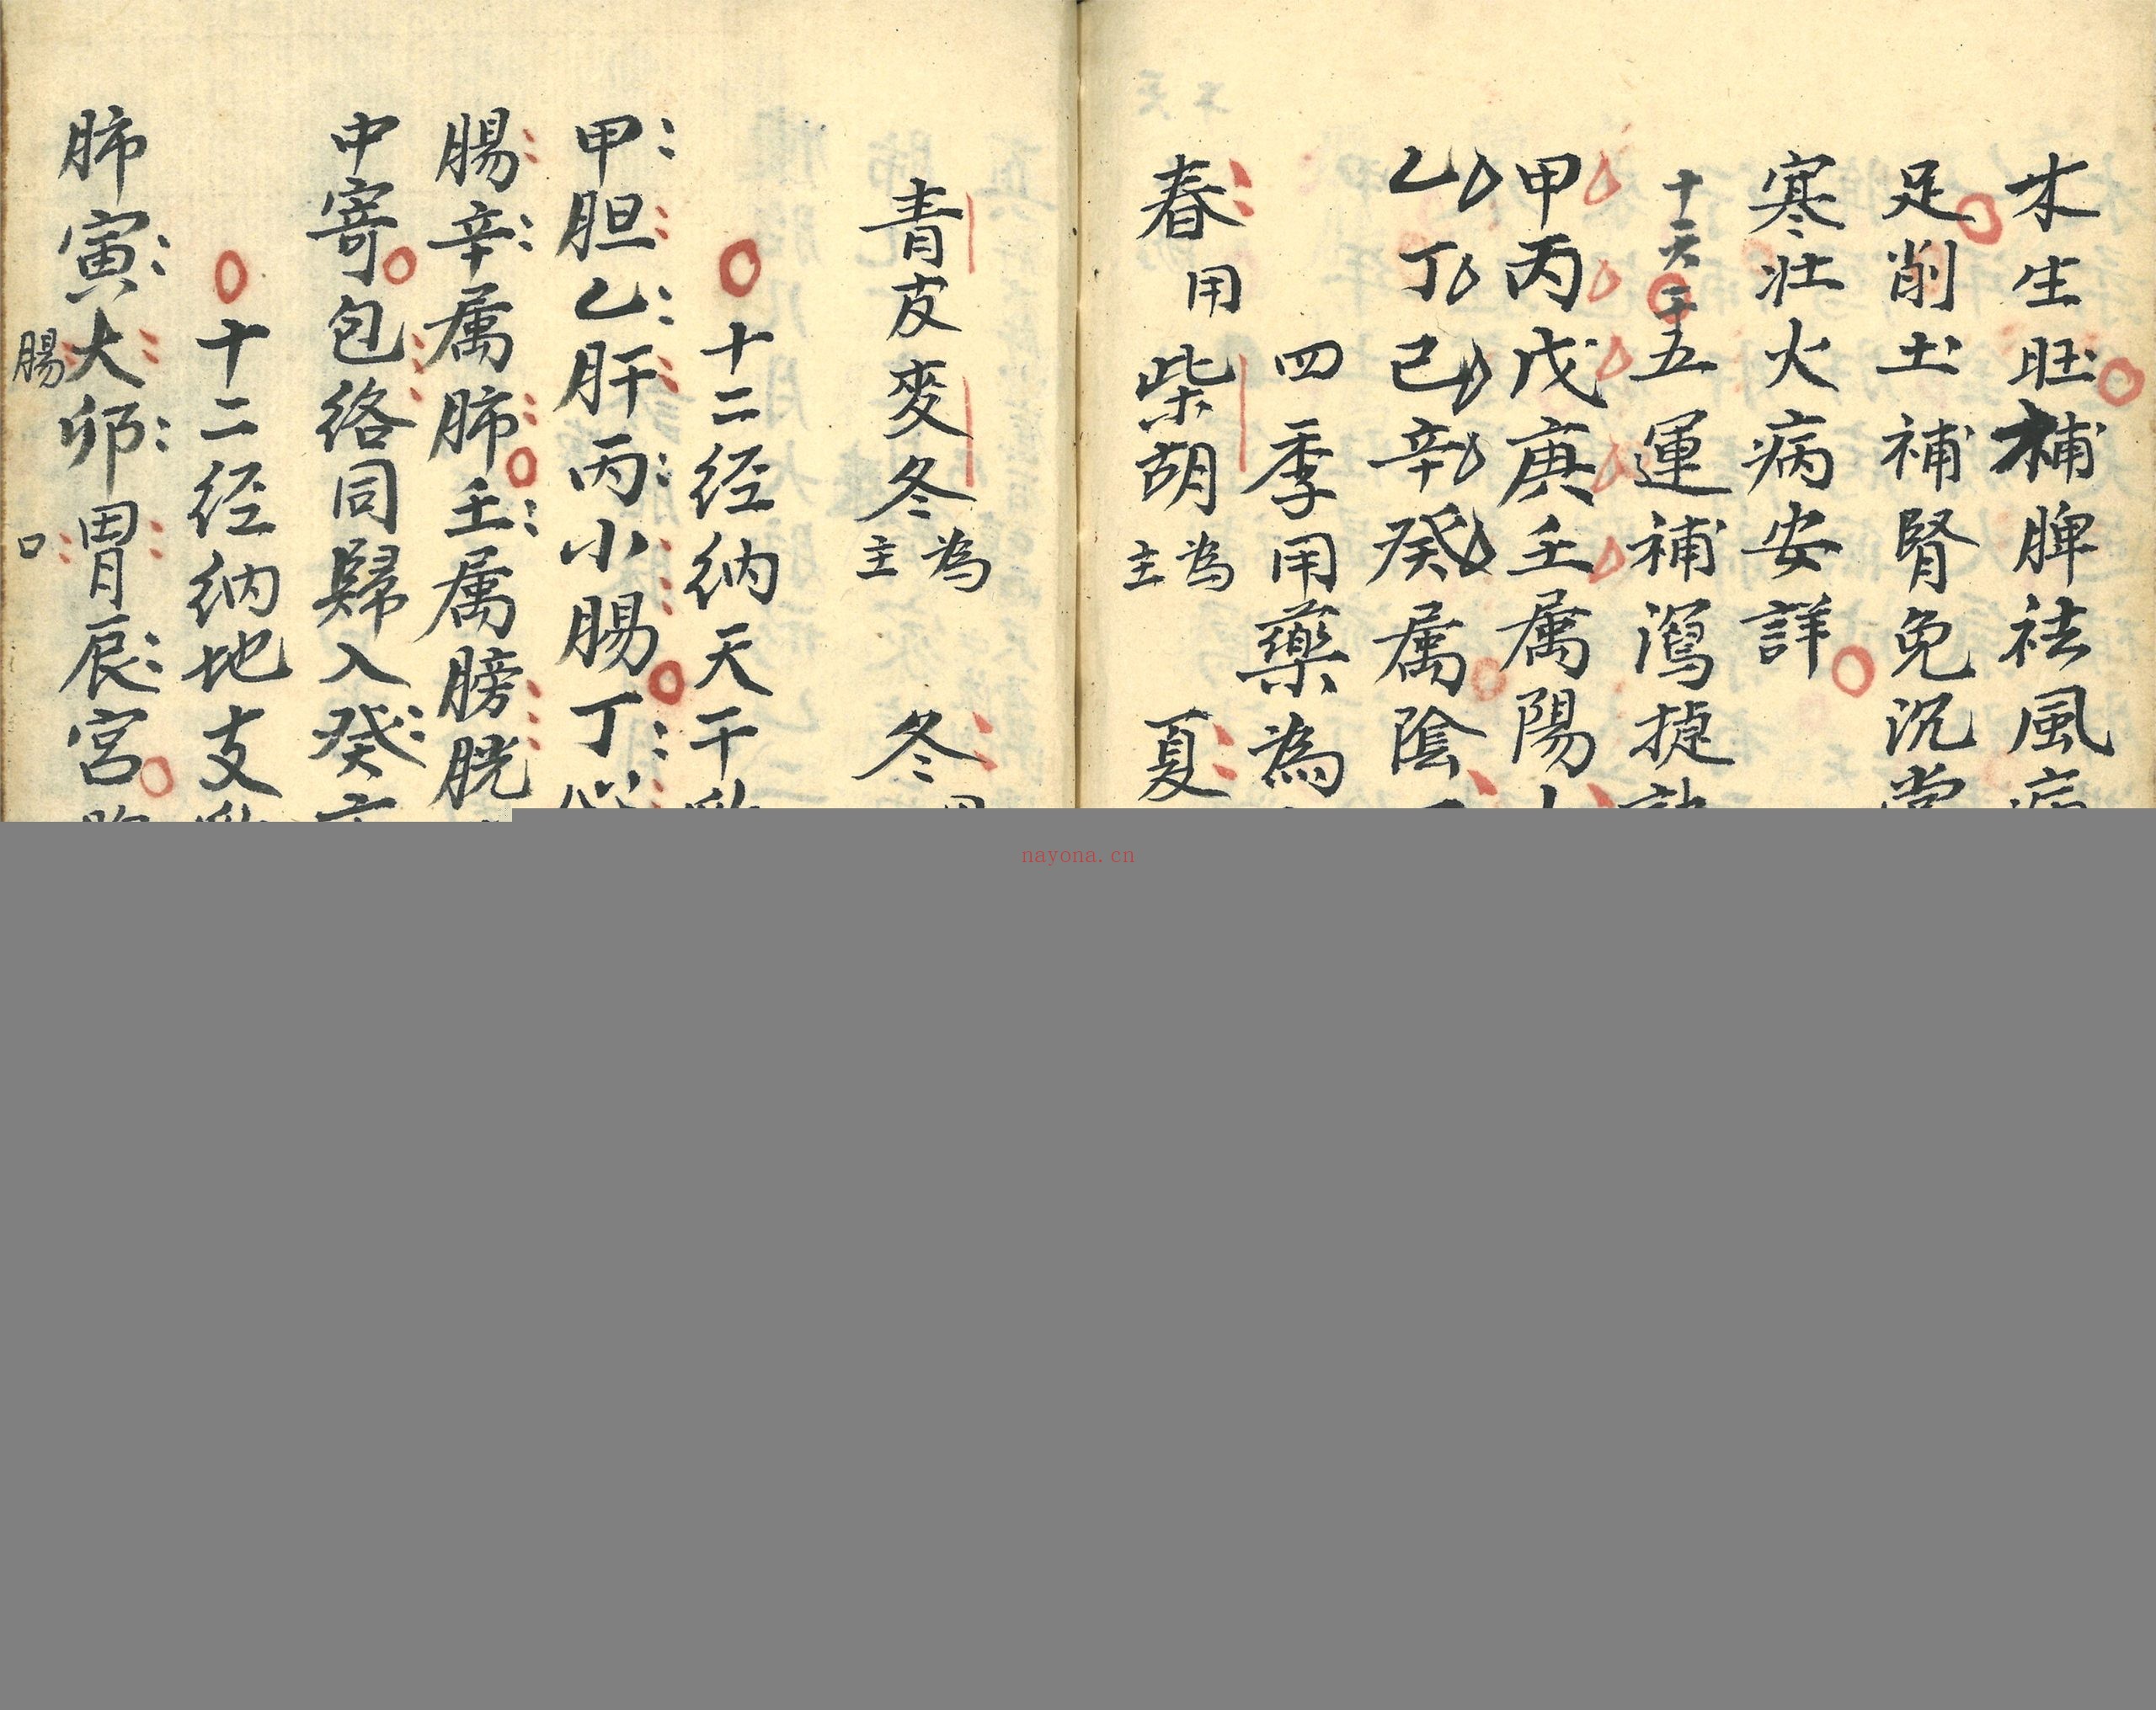 木生旺補脾祛風病
足削土補腎免沉
寒壯火病安詳
十天干五運補瀉捷訣
甲丙戊庚壬属陽
乙丁己辛癸属陰
四季用藥為
春用柴胡為主 夏
青皮麥冬為主 冬
十二经纳天干
甲胆乙肝丙小腸丁心
腸辛属肺壬属膀胱
中寄包络同歸入癸
十二经纳地支
肺寅大腸卯胃口辰宮
nayona.cn